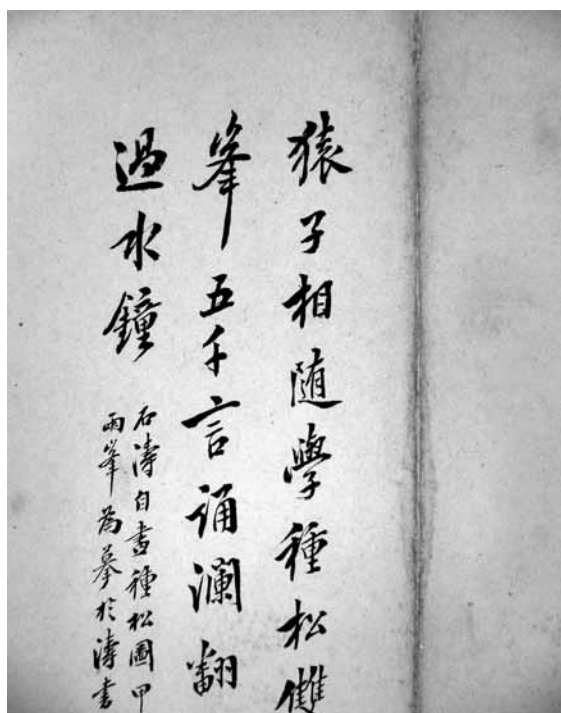 猿子相随學種松雙
峯五千言誦瀾翻
過水鐘
石濤自畫種松圖甲
雨峯為摹於濤書